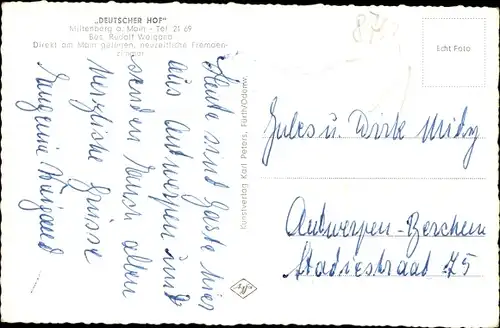 „DEUTSCHER HOF"
Miltenberg a. Main - Tel. 21 69
Bes. Rudolf Weigand
Direkt am Main gelegen, neuzeitliche Fremden-
zimmer
874
Echt Foto
Heute sind Gäste hier
aus Antwerpen und
senden Euch allen
herzliche Grüsse
Eugenie Weigand
Kunstverlag Karl Peters, Fürth/Odenw.
Agfa
Jules u. Dirk Midy
Antwerpen-Berchem
Stadiestraat 75